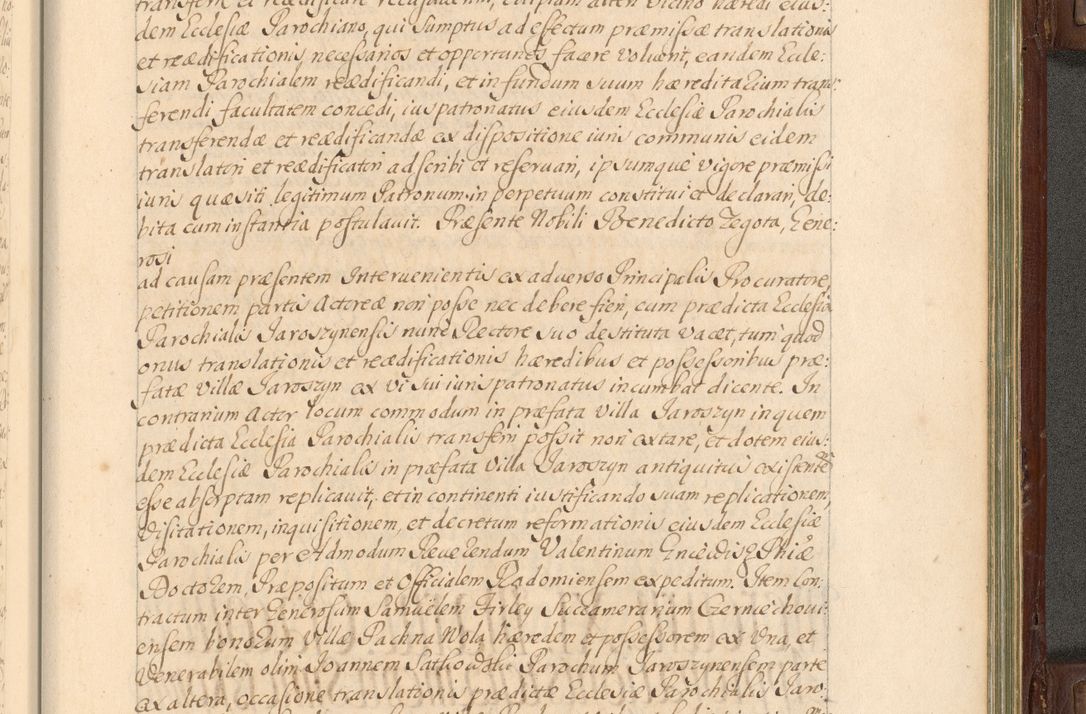 dem Ecclesiæ Parochiano, qui sumptus ad effectum præmissæ translationis
et reædificationis necessarios et opportunos facere voluerit, eandem Eccle:
siam Parochialem reædificandi, et in fundum suum hæreditarium trans:
ferendi facultatem concedi, ius patronatus eiusdem Ecclesiæ Parochialis
transferendæ et reædificandæ ex dispositione iuris communis eidem
translatori et reædificatori adscribi et reservari, ipsumque vigore præmissi
iuris quæsiti legitimum Patronum in perpetuum constitui et declarari, de:
bita cum instantia postulavit. Præsente Nobili Benedicto Zegota, Gene:
rosi
ad causam præsentem Intervenientis ex adverso Principalis Procuratore,
petitionem partis Actoreæ non posse nec debere fieri, cum prædicta Ecclesia
Parochialis Jaroszynensis nunc Rectore suo destituta vacet, tum quod
onus translationis et reædificationis hæredibus et possessoribus præ:
fatæ Villæ Jaroszyn ex vi sui iuris patronatus incumbat dicente. In
contrarium Actor locum commodum in præfata Villa Jaroszyn in quem
prædicta Ecclesia Parochialis transferri possit non extare, et dotem eius:
dem Ecclesiæ Parochialis in præfata Villa Jaroszyn antiquitus existentem
esse absorptam replicavit, et in continenti iustificando suam replicationem,
Visitationem, inquisitionem, et decretum reformationis eiusdem Ecclesiæ
Parochialis per Admodum Reverendum Valentinum Phiæ
Doctorem, Præpositum et Officialem Radomiensem expeditum. Item Con:
tractum inter Generosum Samuelem Firley Succamerarium Czerniechovi:
ensem bonorum Villæ Pachna Wola hæredem et possessorem ex una, et
Venerabilem olim Joannem Parochum Jaroszynensem parte
ex altera, occasione translationis prædictæ Ecclesiæ Parochialis Jaro: